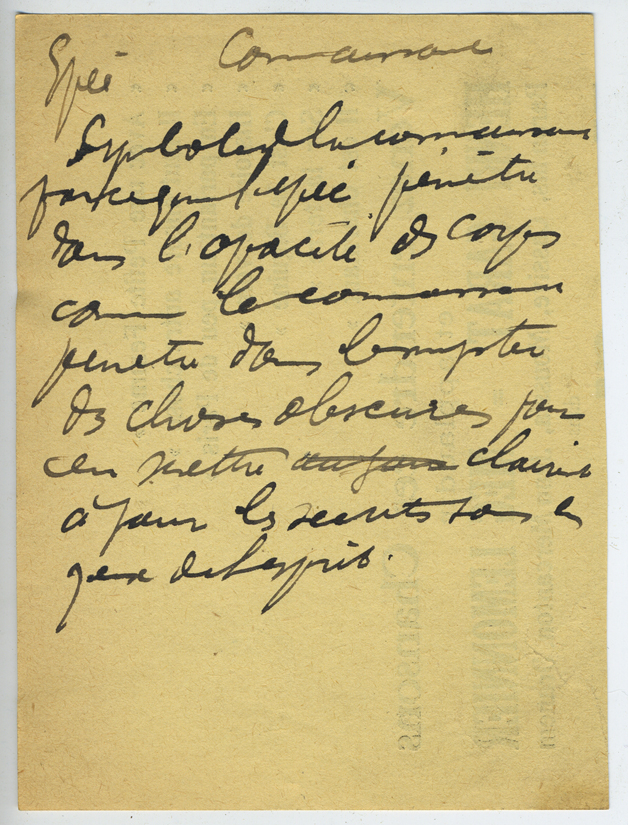 Epée Connaissance
Symbole de la connaissance
parce que l'épée pénètre
dans l'opacité des corps
comme la connaissance
pénètre dans le mystère
des choses obscures pour
en mettre au jour claires
à jour les secrets sous les
yeux de l'esprit.